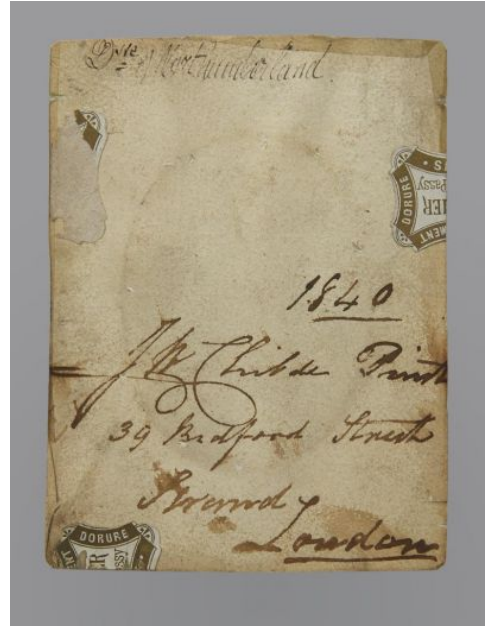 Dss of Northumberland
DORURE
Passy
1840
J W Childe Pinxt
39 Bedford Street
Strand
London
DORURE